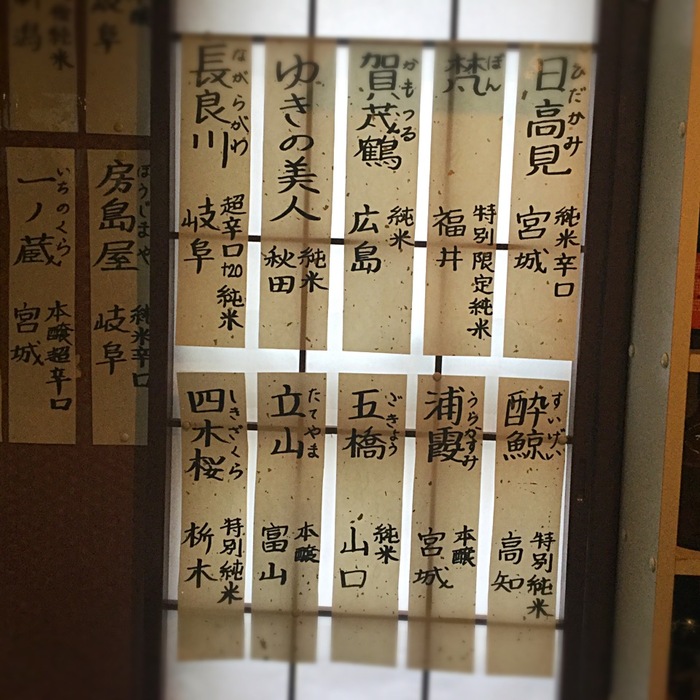 日高見 ひだかみ
純米辛口
宮城
梵 ぼん
特別限定純米
福井
賀茂鶴 かもつる
純米
広島
ゆきの美人
純米
秋田
長良川 ながらがわ
超辛口+20純米
岐阜
酔鯨 すいげい
特別純米
高知
浦霞 うらかすみ
本醸
宮城
五橋 ごきょう
純米
山口
立山 たてやま
本醸
富山
四木桜 しきざくら
特別純米
栃木
岐阜
房島屋 ぼうじまや
純米辛口
岐阜
一ノ蔵 いちのくら
本醸超辛口
宮城